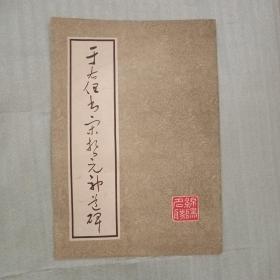 于右任书宋教元神道碑